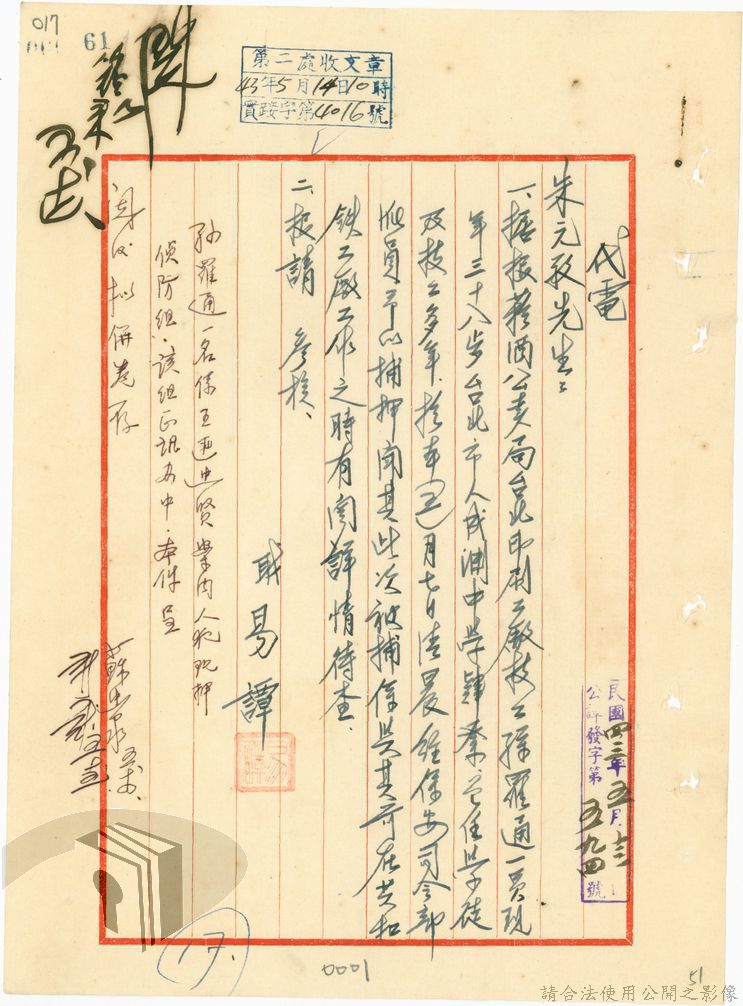 017
61
第二處收文章
43年5月14日10時
貫踐字第4016號
代電
朱元孜先生：
一、據報菸酒公賣局台北印刷工廠技工孫羅通一員現
年三十八歲台北市人成淵中學肄業、曾任學徒
及技工多年、於本(五)月七日清晨經保安司令部
派員予以捕押聞其此次被捕係與其前在共和
鉄工廠工作之時有関詳情待查、
二、報請 參核、
職 易譚
孫羅通一名係王再賢案內人犯現押
偵防組、該組正訊办中、本件呈
閱后擬併卷存
民國四三年五月十三
公譯發字第五九四號
17.
0001
51
請合法使用公開之影像